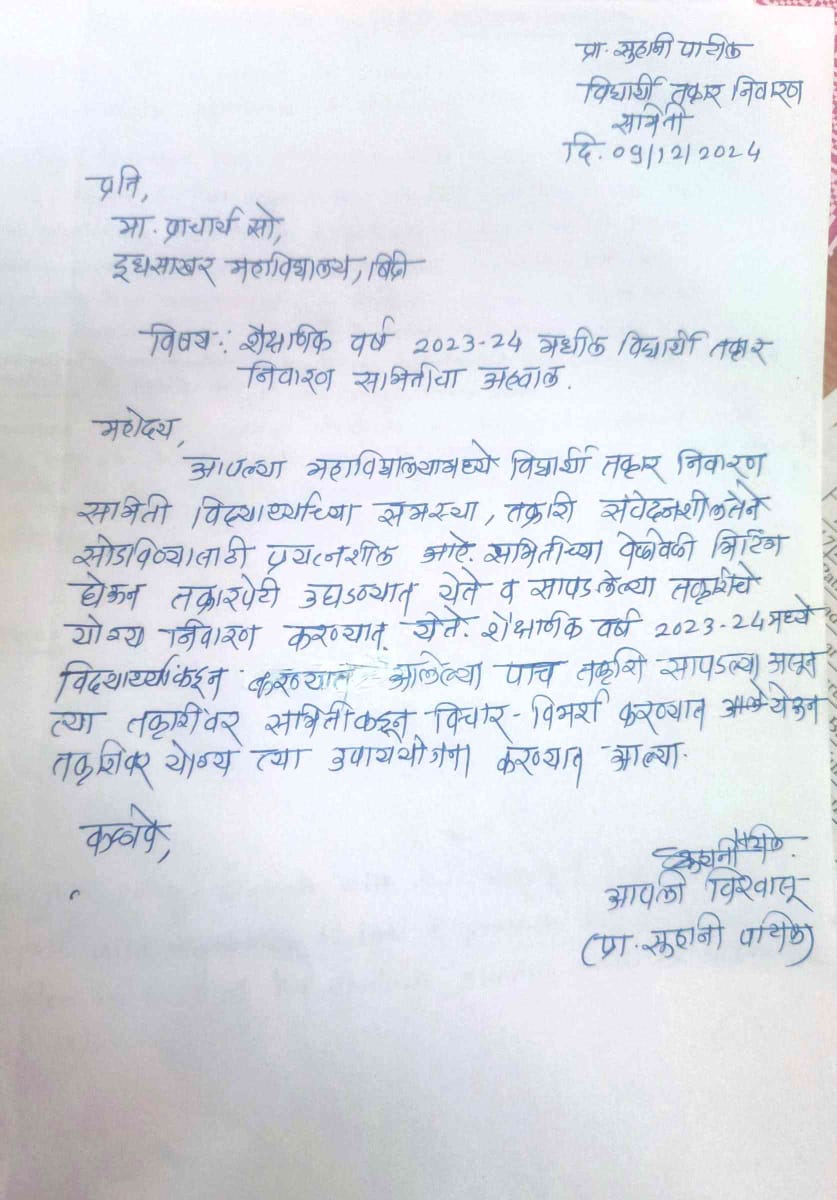 प्रा. सुहानी पाटील
विद्यार्थी तक्रार निवारण
समिती
दि. 09/12/2024
प्रति,
मा. प्राचार्य सो,
दूधसाखर महाविद्यालय, बिद्री
विषय: शैक्षणिक वर्ष 2023-24 मधील विद्यार्थी तक्रार
निवारण समितीचा अहवाल.
महोदय,
आपल्या महाविद्यालयामध्ये विद्यार्थी तक्रार निवारण
समिती विद्यार्थ्यांच्या समस्या, तक्रारी संवेदनशीलतेने
सोडविण्यासाठी प्रयत्नशील आहे. समितीच्या वेळोवेळी मिटिंग
घेऊन तक्रारपेटी उघडण्यात येते व सापडलेल्या तक्रारीचे
योग्य निवारण करण्यात येते. शैक्षणिक वर्ष 2023-24 मध्ये
विद्यार्थ्यांकडून करण्यात आलेल्या पाच तक्रारी सापडल्या असून
त्या तक्रारींवर समितीकडून विचार-विमर्श करण्यात येऊन
तक्रारींवर योग्य त्या उपाययोजना करण्यात आल्या.
कळावे,
आपली विश्वासू
(प्रा. सुहानी पाटील)